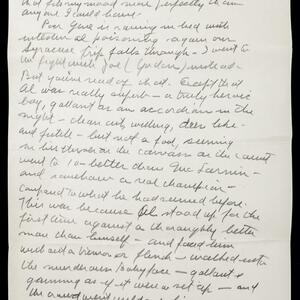 that fit my mood more perfectly than
any one I could have.
For Gene is raving in bed with
intestinal poisoning - again our
Syracuse trip falls through - I went to
the fight with Joe (Gordon) instead.
But you've read of that. Except that
Al was really superb - a truly heroic
boy, gallant as an accordion in the
night - clean cut, willing, deer like
and futile - but not a fool, seeming
in his throes on the canvass as the count
went to 10 - better than Mc Larnin -
and somehow a real champion -
compared to what he had seemed before.
This was because Al stood up for the
first time against a thoroughly better
man than himself - and faced him
without a tremor or flinch - walked into
the murderous baby face - gallant &
gunning as if it were a set up - and
the crowd went